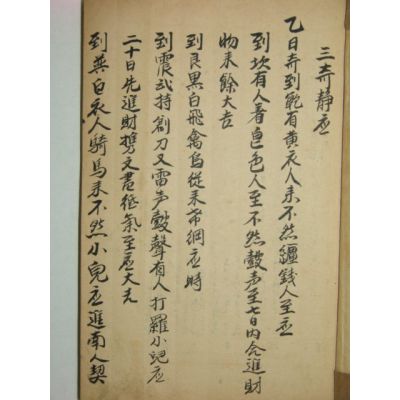 三奇靜应
乙日奇到乾有黄衣人来不然纒錢人至应
到坎有人着皂色人至不然皷声至七日内合進財
物来餘大吉
到艮黑白飛禽鳥從来带網应時
到震武持劍刀又雷声皷聲有人打羅小兒应
二十日先進財携文書征氣至应大吉
到巽白衣人騎馬来不然小兒应進南人契